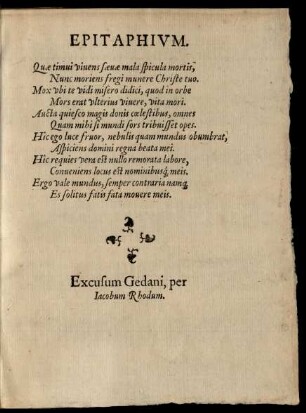 EPITAPHIVM.
Quæ timui viuens sæuæ mala spicula mortis,
Nunc moriens fregi munere Christe tuo.
Mox vbi te vidi misero didici, quod in orbe
Mors erat vlterius viuere, vita mori.
Aucta quiesco magis donis cœlestibus, omnes
Quam mihi si mundi sors tribuisset opes.
Hic ego luce fruor, nebulis quam mundus obumbrat,
Aspiciens domini regna beata mei.
Hic requies vera est nullo remorata labore,
Conueniens locus est nominibusq́; meis.
Ergo vale mundus, semper contraria namq́;
Es solitus fatis fata mouere meis.
Excusum Gedani, per
Iacobum Rhodum.